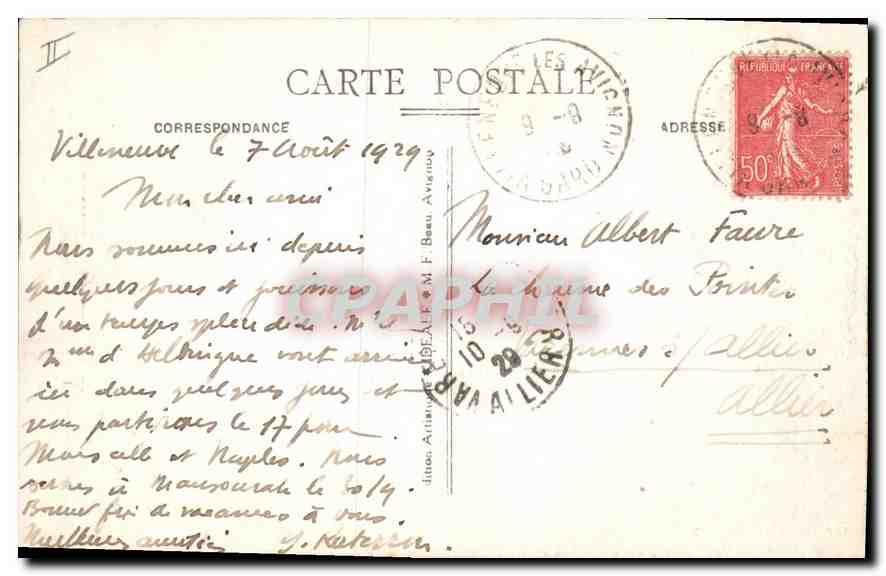 II
CARTE POSTALE
CORRESPONDANCE
ADRESSE
VILLENEUVE LES AVIGNON GARD
9 -8
REPUBLIQUE FRANÇAISE
50c
9 -8
Villeneuve le 7 Août 1929
Mon cher ami
Nous sommes ici depuis
quelques jours et jouissons
d'un temps splendide. Mr et
Mme d' vont arriver
ici dans quelques jours et
nous partirons le 17 pour
Marseille et Naples. Nous
serons à Mansourah le 30/9.
Bonne fin de vacances à vous.
Meilleures amitiés
Edition Artistique "IDEALE" M. F. Beau, Avignon
Monsieur Albert Faure
La des
Varennes s/Allier
Allier
VARENNES ALLIER
10 29
CPAPHIL